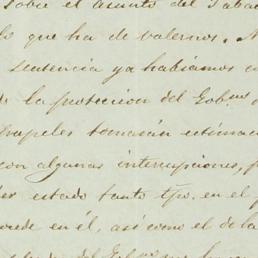 sobre el asunto del Taba
lo que ha de valernos.
sentencia ya habiamos
de la proteccion del Gob.no
papeles tomarán estima
con algunas interrupciones, p
estado tanto tpo. en el p
en él, así como el de la